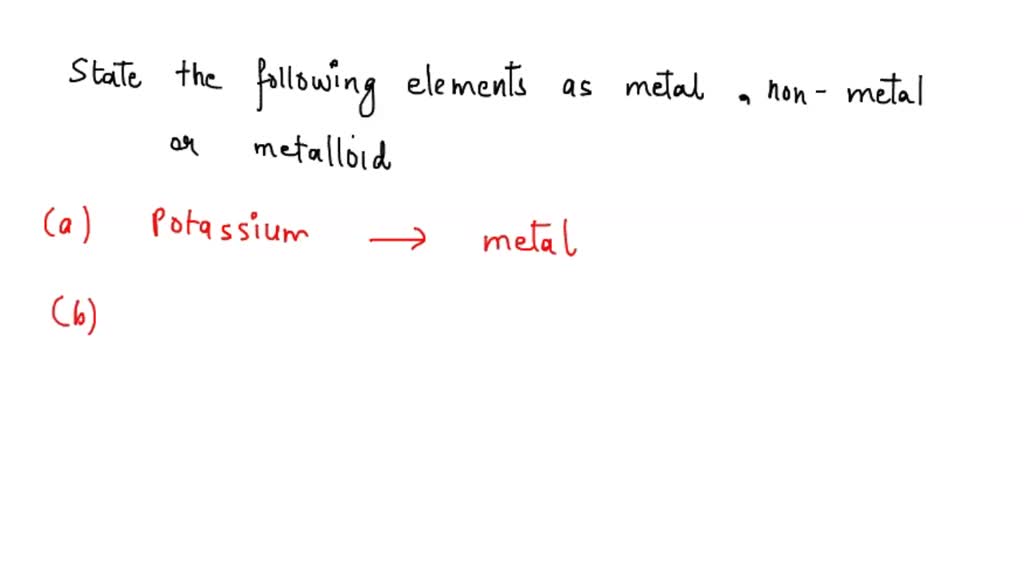 State the following elements as metal , non-metal
or metalloid
(a) Potassium → metal
(b)